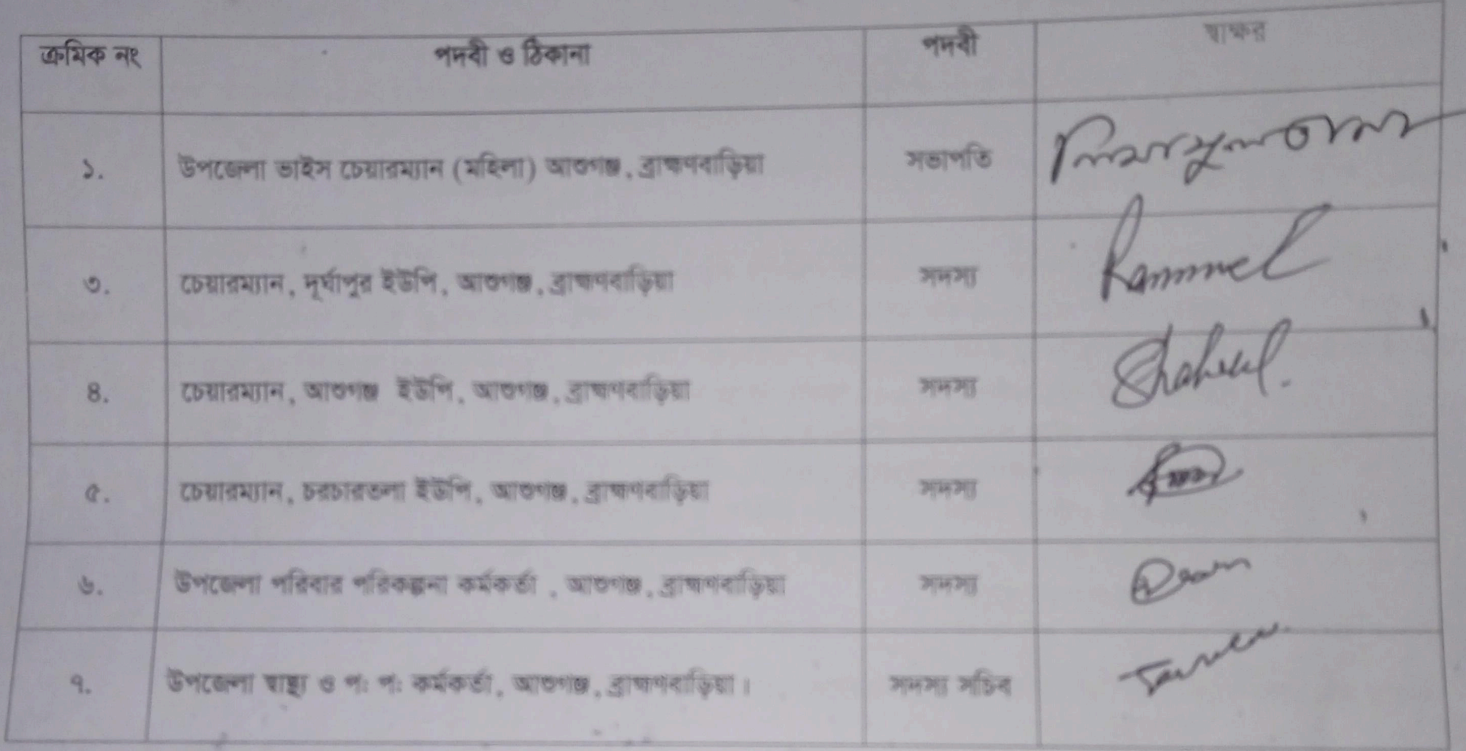 ক্রমিক নং পদবী ও ঠিকানা পদবী স্বাক্ষর
১. উপজেলা ভাইস চেয়ারম্যান (মহিলা) আশুগঞ্জ, ব্রাহ্মণবাড়িয়া সভাপতি
৩. চেয়ারম্যান, দূর্গাপুর ইউপি, আশুগঞ্জ, ব্রাহ্মণবাড়িয়া সদস্য Rammel
৪. চেয়ারম্যান, আশুগঞ্জ ইউপি, আশুগঞ্জ, ব্রাহ্মণবাড়িয়া সদস্য
৫. চেয়ারম্যান, চরচারতলা ইউপি, আশুগঞ্জ, ব্রাহ্মণবাড়িয়া সদস্য
৬. উপজেলা পরিবার পরিকল্পনা কর্মকর্তা , আশুগঞ্জ, ব্রাহ্মণবাড়িয়া সদস্য
৭. উপজেলা স্বাস্থ্য ও পঃ পঃ কর্মকর্তা, আশুগঞ্জ, ব্রাহ্মণবাড়িয়া। সদস্য সচিব